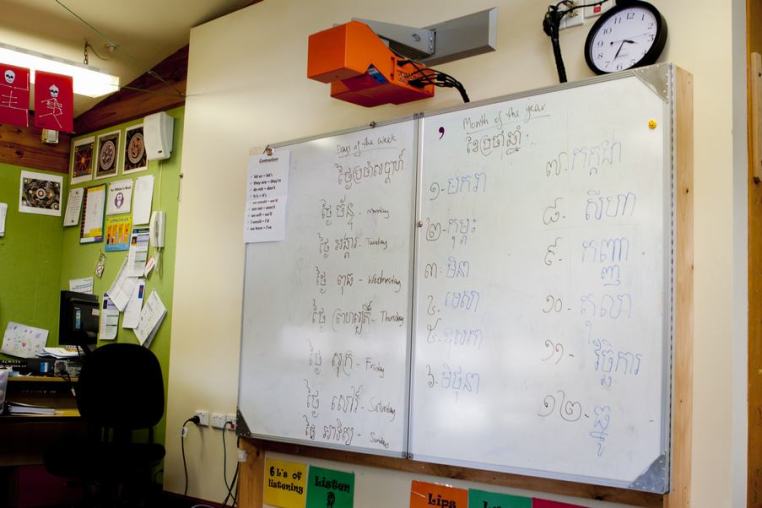 Contractions
Days of the Week
ថ្ងៃប្រចាំសប្ដាហ៍
ថ្ងៃ ច័ន្ទ Monday
ថ្ងៃ អង្គារ Tuesday
ថ្ងៃ ពុធ Wednesday
ថ្ងៃ ព្រហស្បតិ៍ - Thursday
ថ្ងៃ សុក្រ - Friday
ថ្ងៃ សៅរ៍ - Saturday
ថ្ងៃ អាទិត្យ - Sunday
Month of the year
ខែប្រចាំឆ្នាំ
១-មករា
២-កុម្ភៈ
៣-មិនា
៤-មេសា
៥-ឧសភា
៦-មិថុនា
៧-កក្កដា
៨- សីហា
៩- កញ្ញា
១០- តុលា
១១- វិច្ឆិការ
១២- ធ្នូ
6 L's of
listening
Listen
Lips